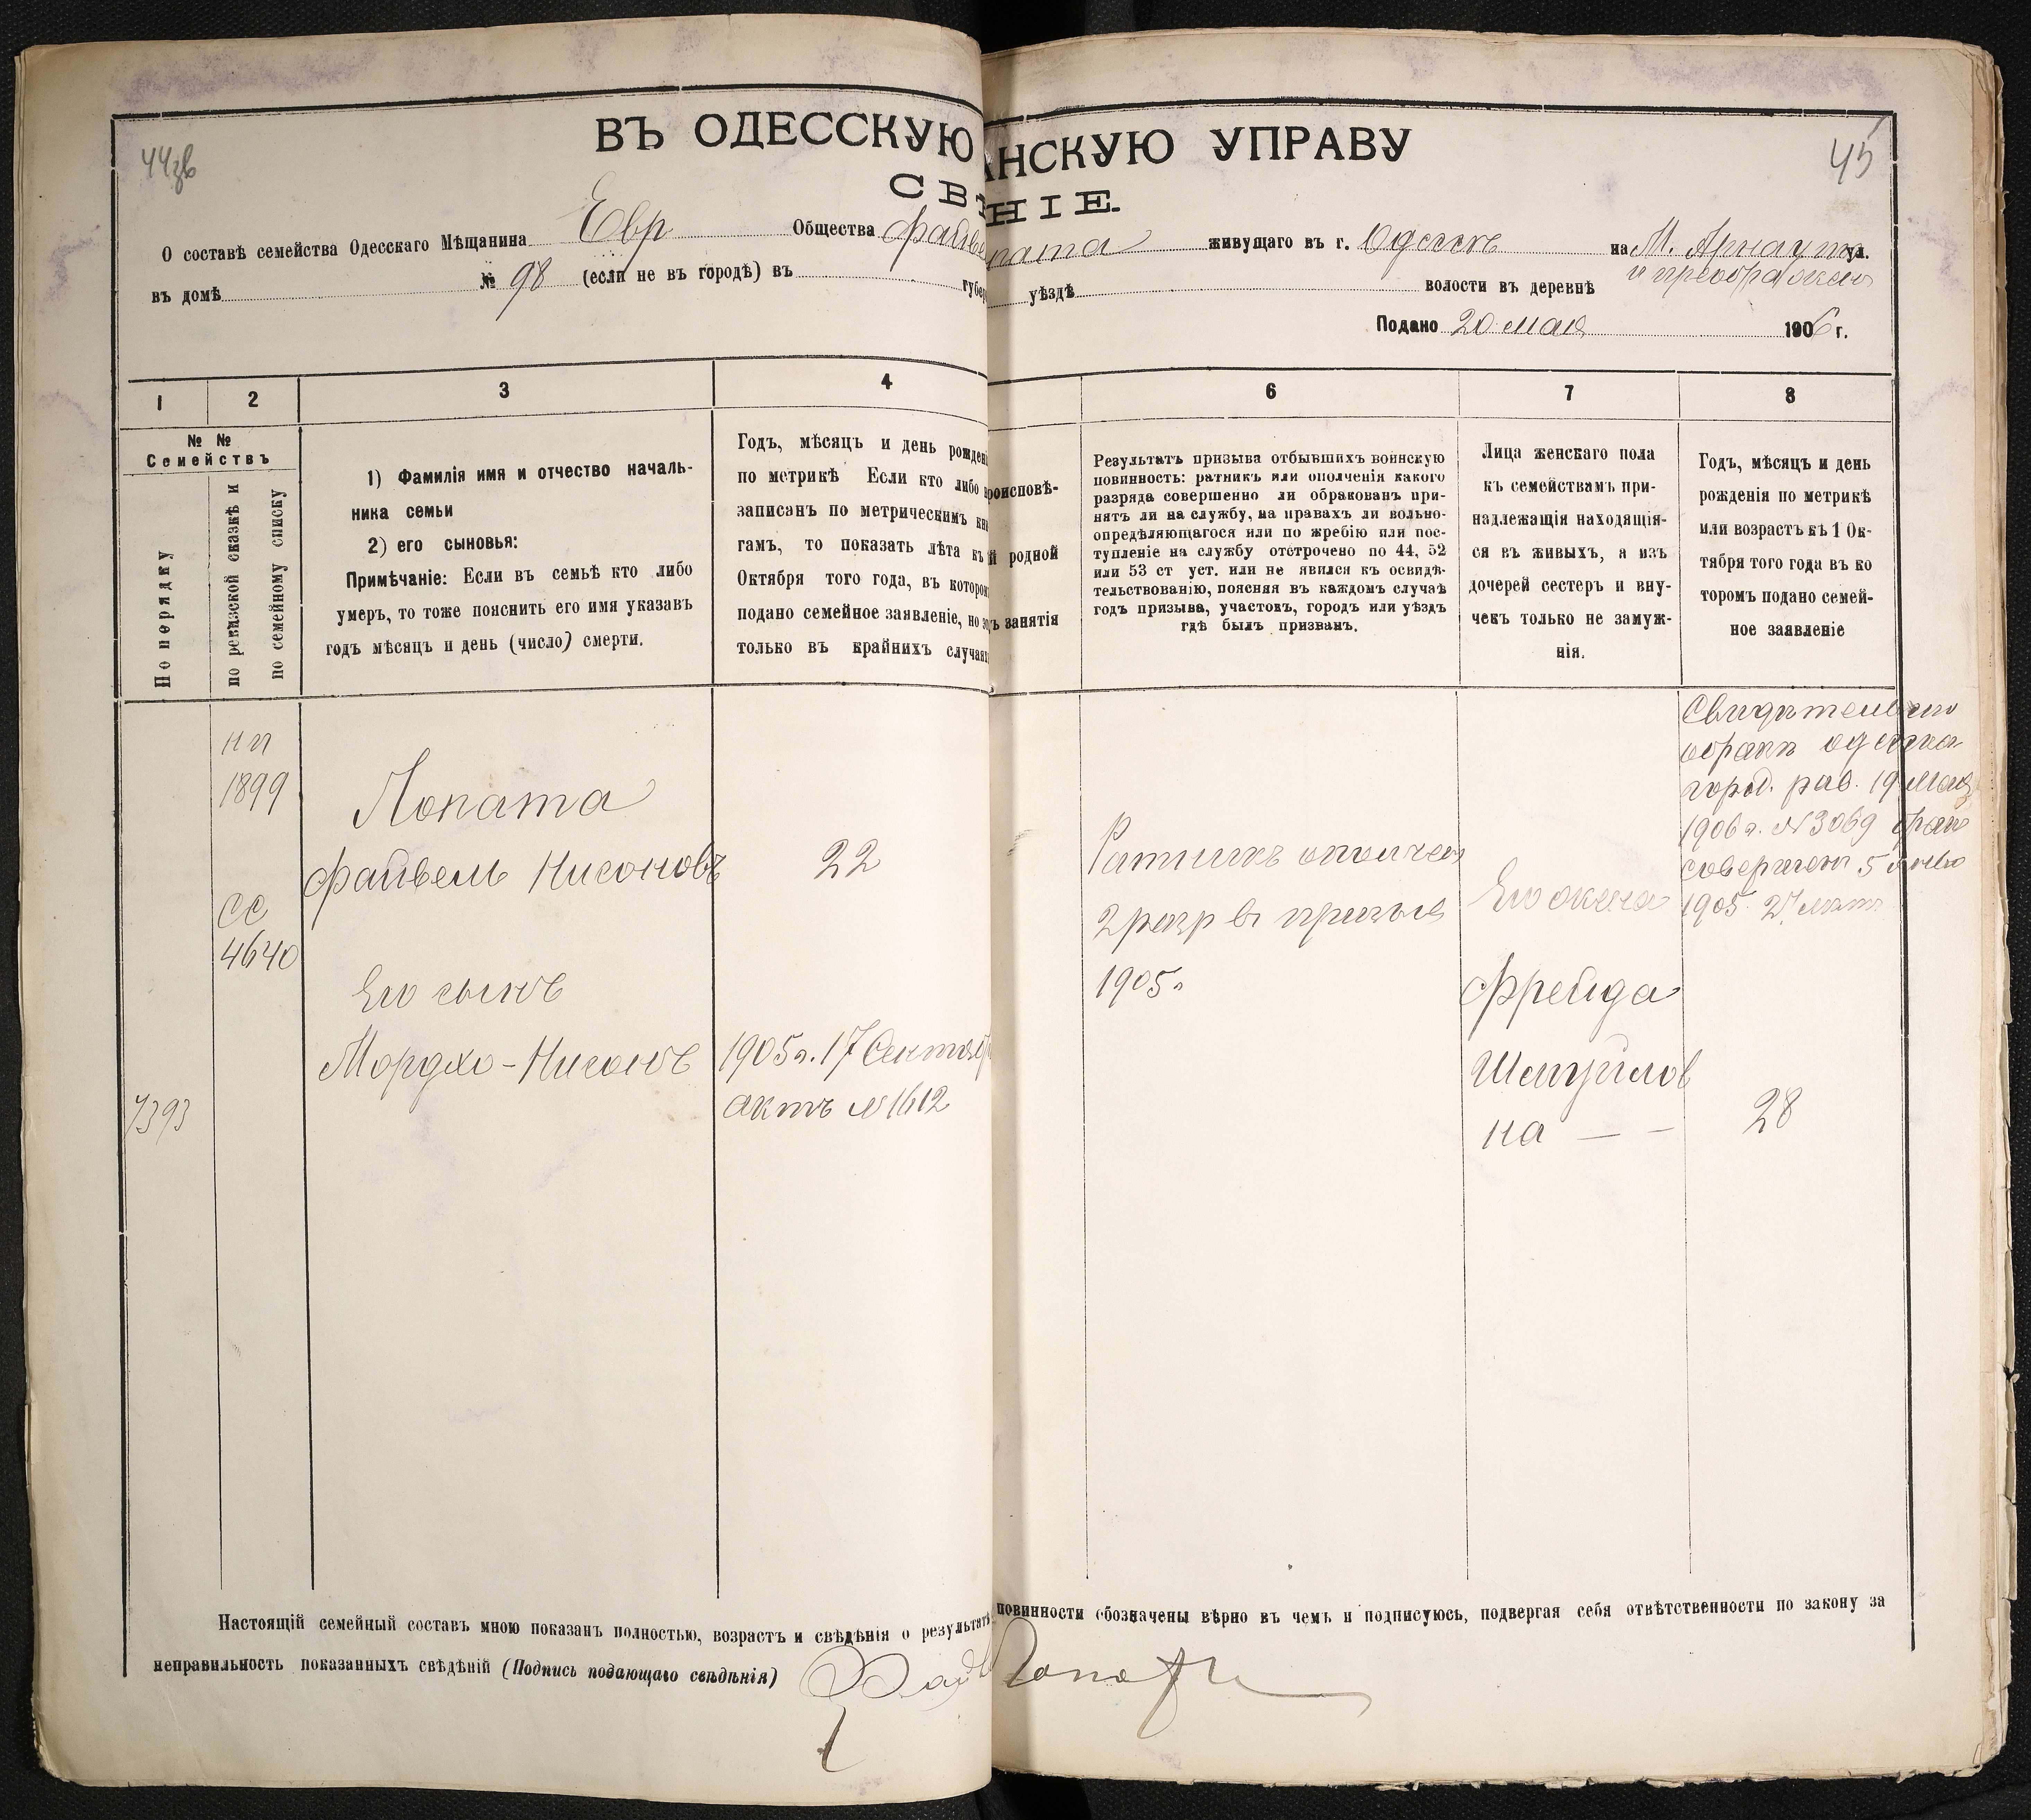 44зв
45
ВЪ ОДЕССКУЮ АНСКУЮ УПРАВУ
СВѢ НІЕ.
О составѣ семейства Одесскаго Мѣщанина Евр Общества Файве пата живущаго въ г. Одессѣ на М. Арнаут ул.
и преображен
въ домѣ № 98 (если не въ городѣ) въ губер уѣздѣ волости въ деревнѣ
Подано 20 мая 1906 г.
1 2 3 4 6 7 8
№ №
Семействъ
По порядку
по ревизской сказкѣ и
по семейному списку
1) Фамилія имя и отчество началь-
ника семьи
2) его сыновья:
Примѣчаніе: Если въ семьѣ кто либо
умеръ, то тоже пояснить его имя указавъ
годъ мѣсяцъ и день (число) смерти.
Годъ, мѣсяцъ и день рожден
по метрикѣ Если кто либо
записанъ по метрическимъ кни
гамъ, то показать лѣта къ
Октября того года, въ котором
подано семейное заявленіе, но
только въ крайнихъ случаях
роисповѣ-
й родной
ъ занятія
Результатъ призыва отбывшихъ воинскую
повинность: ратникъ или ополченія какого
разряда совершенно ли обракованъ при-
нятъ ли на службу, на правахъ ли вольно-
опредѣляющагося или по жребію или пос-
тупленіе на службу отстрочено по 44, 52
или 53 ст уст. или не явился къ освидѣ-
тельствованію, поясняя въ каждомъ случаѣ
годъ призыва, участокъ, городъ или уѣздъ
гдѣ былъ призванъ.
Лица женскаго пола
къ семействамъ при-
надлежащія находящія-
ся въ живыхъ, а изъ
дочерей сестеръ и вну-
чекъ только не замуж-
нія.
Годъ, мѣсяцъ и день
рожденія по метрикѣ
или возрастъ къ 1 Ок-
тября того года въ ко
торомъ подано семей-
ное заявленіе
нп
1899
СС
4640
7393
Лопата
Файвель Нисоновъ
22
Его сынъ
Мордхо-Нисонъ
1905г. 17 Сентяб
актъ №1612
Ратникъ ополчен
2 разр в призыв
1905г
Его жена
Фрейда
Шмуйлов
на — —
28
Свидѣтельство
о бракѣ одесска
город. рав. 19 Мая
1906 г. №3069 брак
совершенъ 5
1905.
Настоящій семейный составъ мною показанъ полностью, возрастъ и свѣдѣнія о результатѣ повинности обозначены вѣрно въ чемъ и подписуюсь, подвергая себя отвѣтственности по закону за
неправильность показанныхъ свѣдѣній (Подпись подающаго свѣдѣнія) Лопата